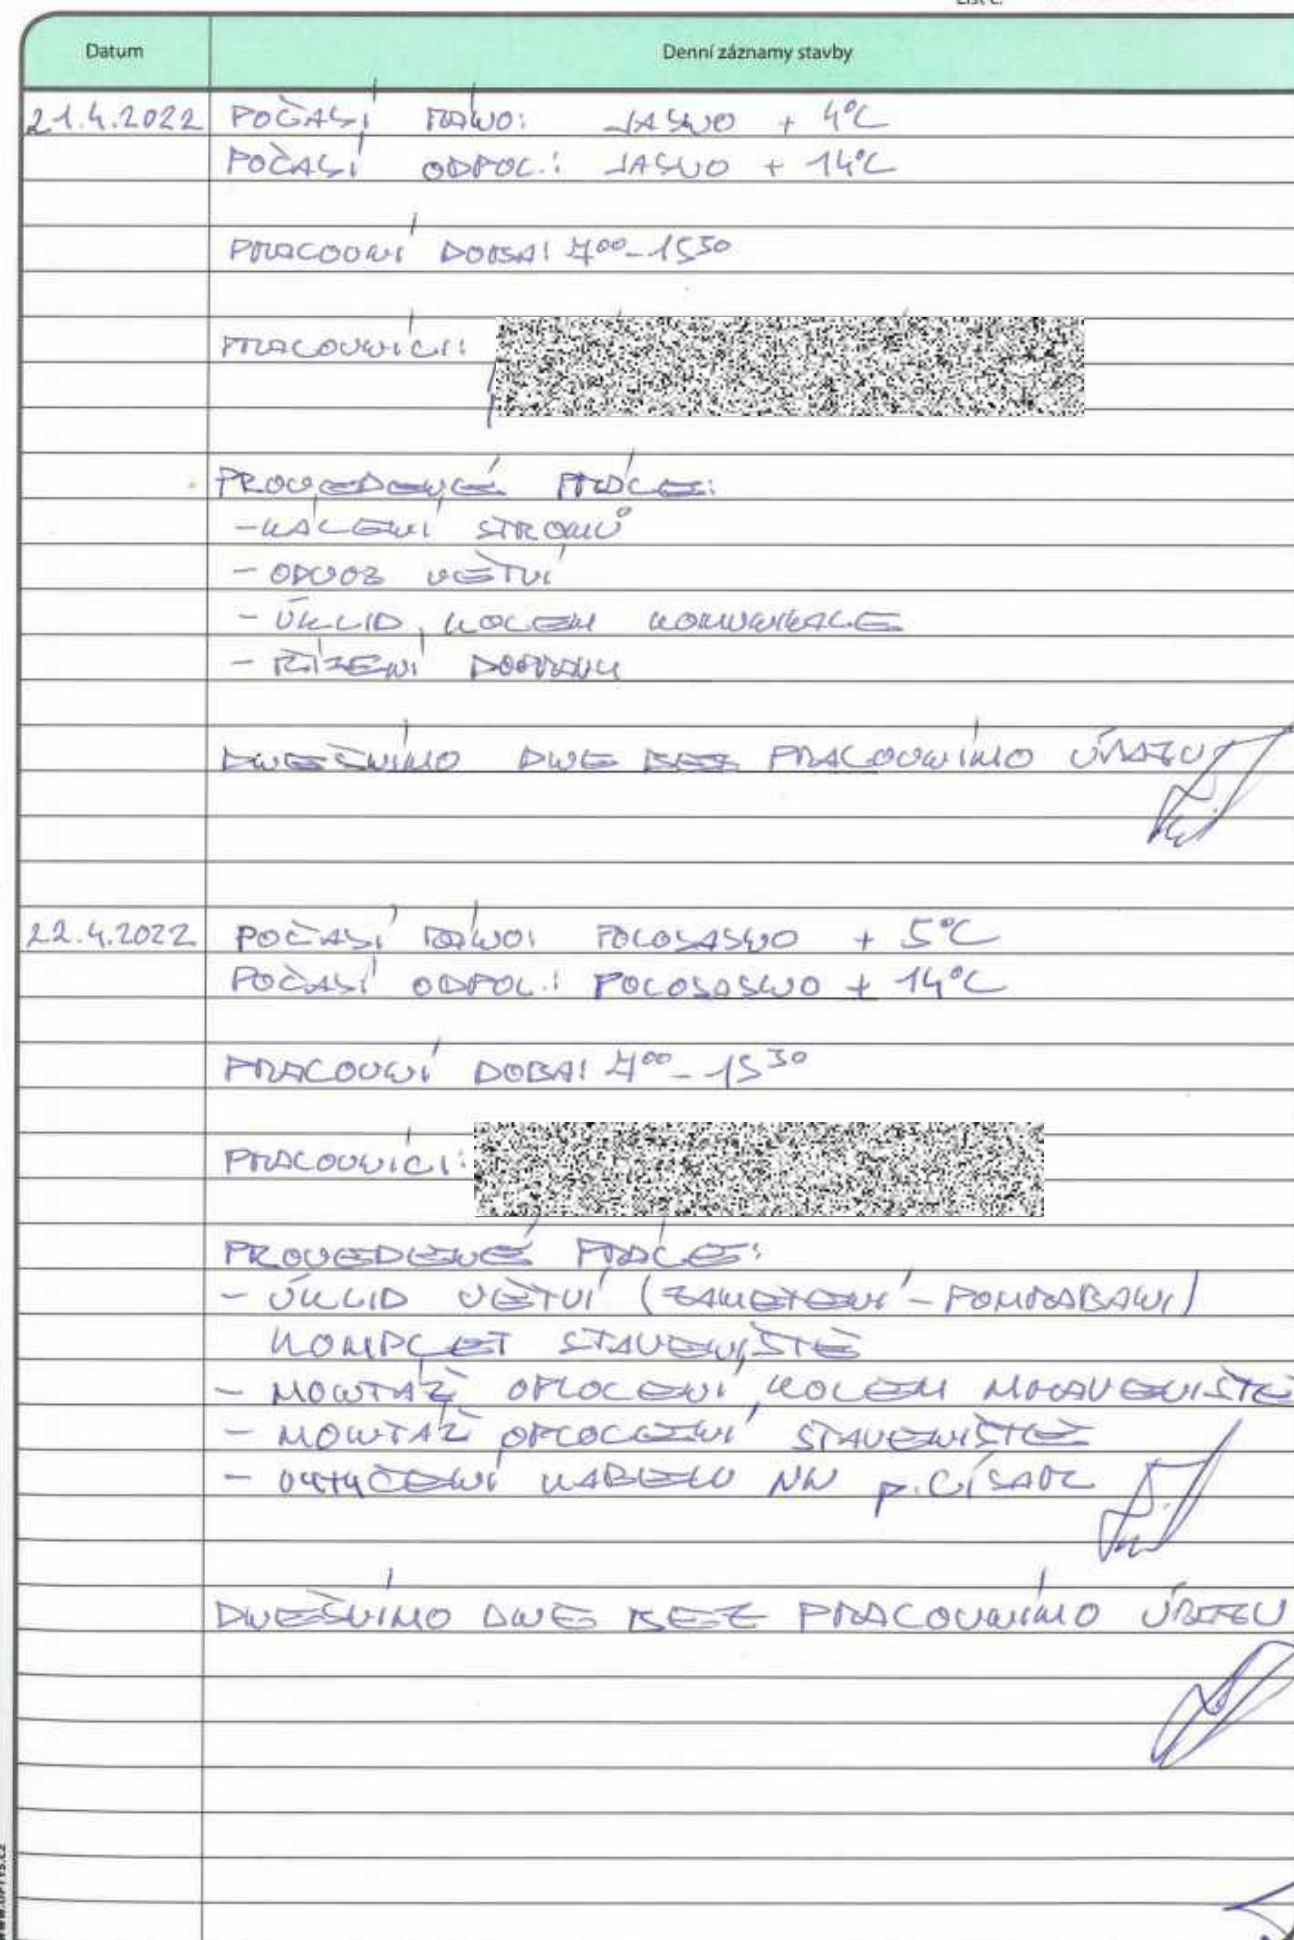 Datum
Denní záznamy stavby
21.4.2022 POČASÍ RÁNO: JASNO + 4°C
POČASÍ ODPOL.: JASNO + 14°C
PRACOVNÍ DOBA: 7⁰⁰-15³⁰
PRACOVNÍCI:
PROVEDENÉ PRÁCE:
- KÁCENÍ STROMŮ
- ODVOZ VĚTVÍ
- ÚKLID KOLEM KOMUNIKACE
- ŘÍZENÍ DOPRAVY
DNEŠNÍHO DNE BEZ PRACOVNÍHO ÚRAZU
22.4.2022 POČASÍ RÁNO: POLOJASNO + 5°C
POČASÍ ODPOL.: POLOJASNO + 14°C
PRACOVNÍ DOBA: 7⁰⁰-15³⁰
PRACOVNÍCI:
PROVEDENÉ PRÁCE:
- ÚKLID VĚTVÍ (ZAMETENÍ - POHRABÁNÍ)
KOMPLET STAVENIŠTĚ
- MONTÁŽ OPLOCENÍ KOLEM MRAVENIŠTĚ
- MONTÁŽ OPLOCENÍ STAVENIŠTĚ
- VYTYČENÍ KABELU NN p. CÍSAŘ
DNEŠNÍHO DNE BEZ PRACOVNÍHO ÚRAZU